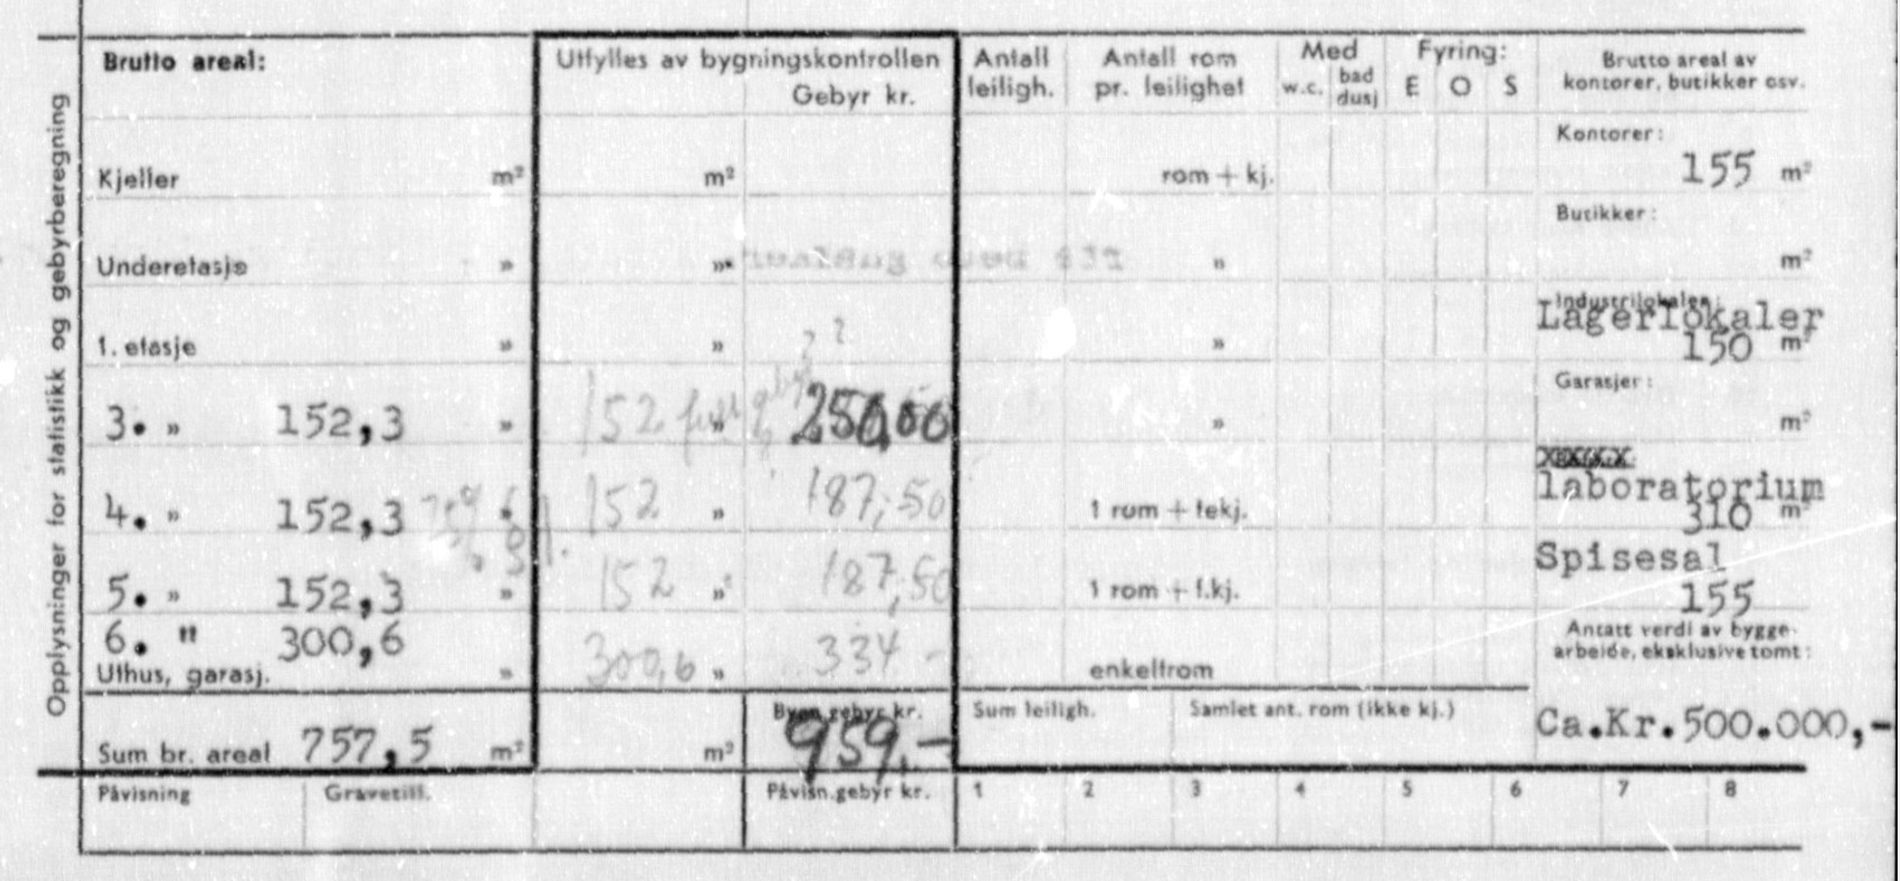 Opplysninger for statistikk og gebyrberegning
Brutto areal:
Utfylles av bygningskontrollen
Gebyr kr.
Antall leiligh.
Antall rom pr. leilighet
Med
w.c. bad dusj
Fyring:
E O S
Brutto areal av
kontorer, butikker osv.
Kjeller m² m² rom + kj.
Kontorer:
155 m²
Underetasje » » »
Butikker:
m²
1. etasje » » »
? ?
Industrilokaler:
Lagerlokaler
150 m²
3. » 152,3 » 152 » 250,00 »
Garasjer:
m²
4. » 152,3 » 152 » 187,50 1 rom + tekj.
xxxxxx
laboratorium
310 m²
5. » 152,3 » 152 » 187,50 1 rom + t.kj.
Spisesal
155
6. " 300,6 300,6 » 334 -
Uthus, garasj. » enkeltrom
Antatt verdi av bygge-
arbeide, eksklusive tomt:
Ca.Kr.500.000,-
Sum br. areal 757,5 m² m² Bygn.gebyr kr. 959,-
Sum leiligh. Samlet ant. rom (ikke kj.)
Påvisning Gravetill. Påvisn.gebyr kr. 1 2 3 4 5 6 7 8